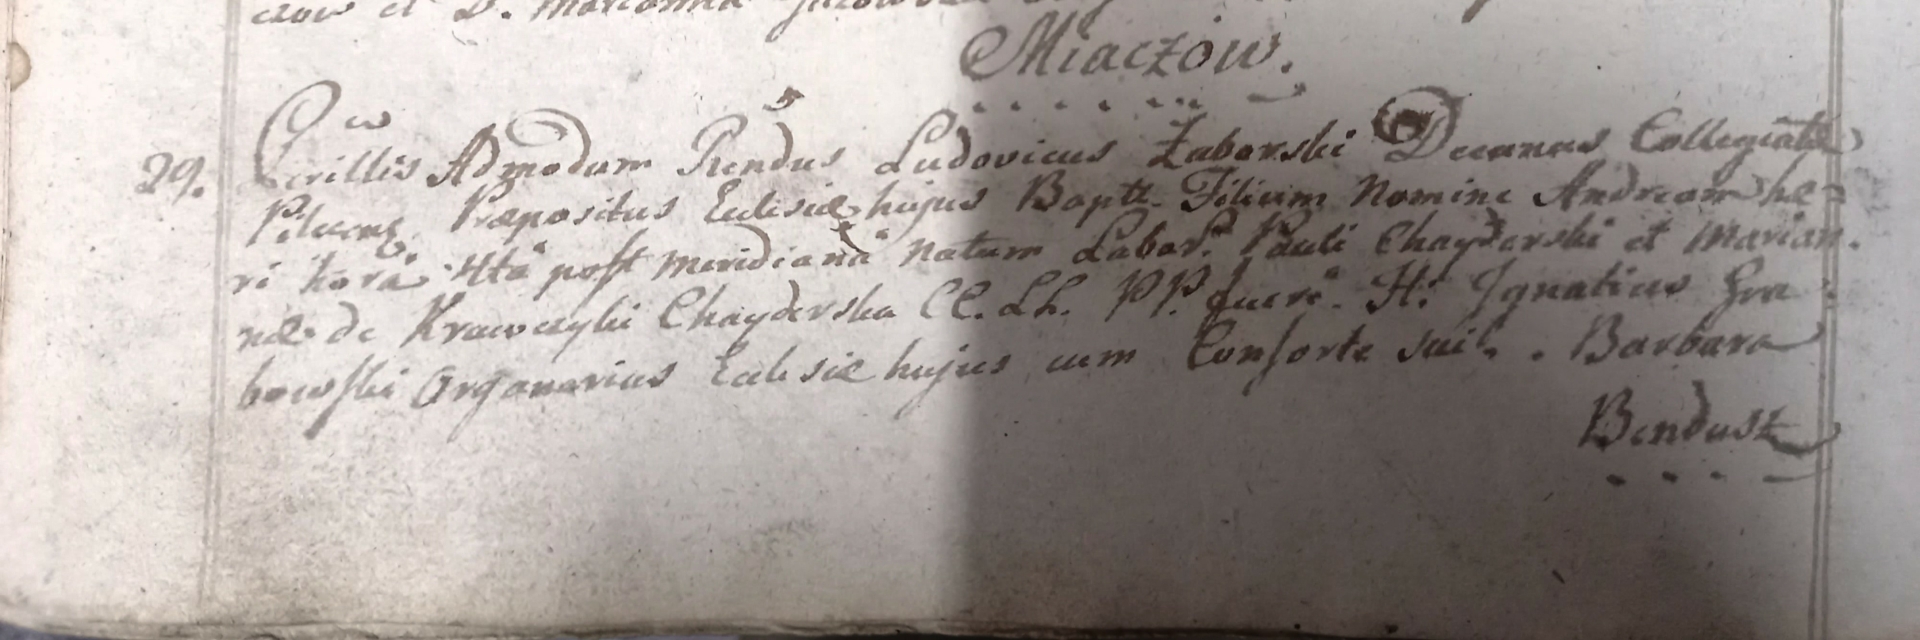 et D. Marianna
Miaczow.
29. Eirillis Admodum Rendus Ludovicus Zaborski Decanus Collegiatæ
Præpositus Eclesiæ hujus Baptt. Filium Nomine Andream he=
ri hora 4ta post meridiana natum Labor. Pauli Chayderski et Marian.
næ de Krawczyki Chayderska CC. LL. PP. fuere. H. Ignatius Gra
bowski Organarius Eclesiæ hujus cum Consorte sui. Barbara
Bendusz